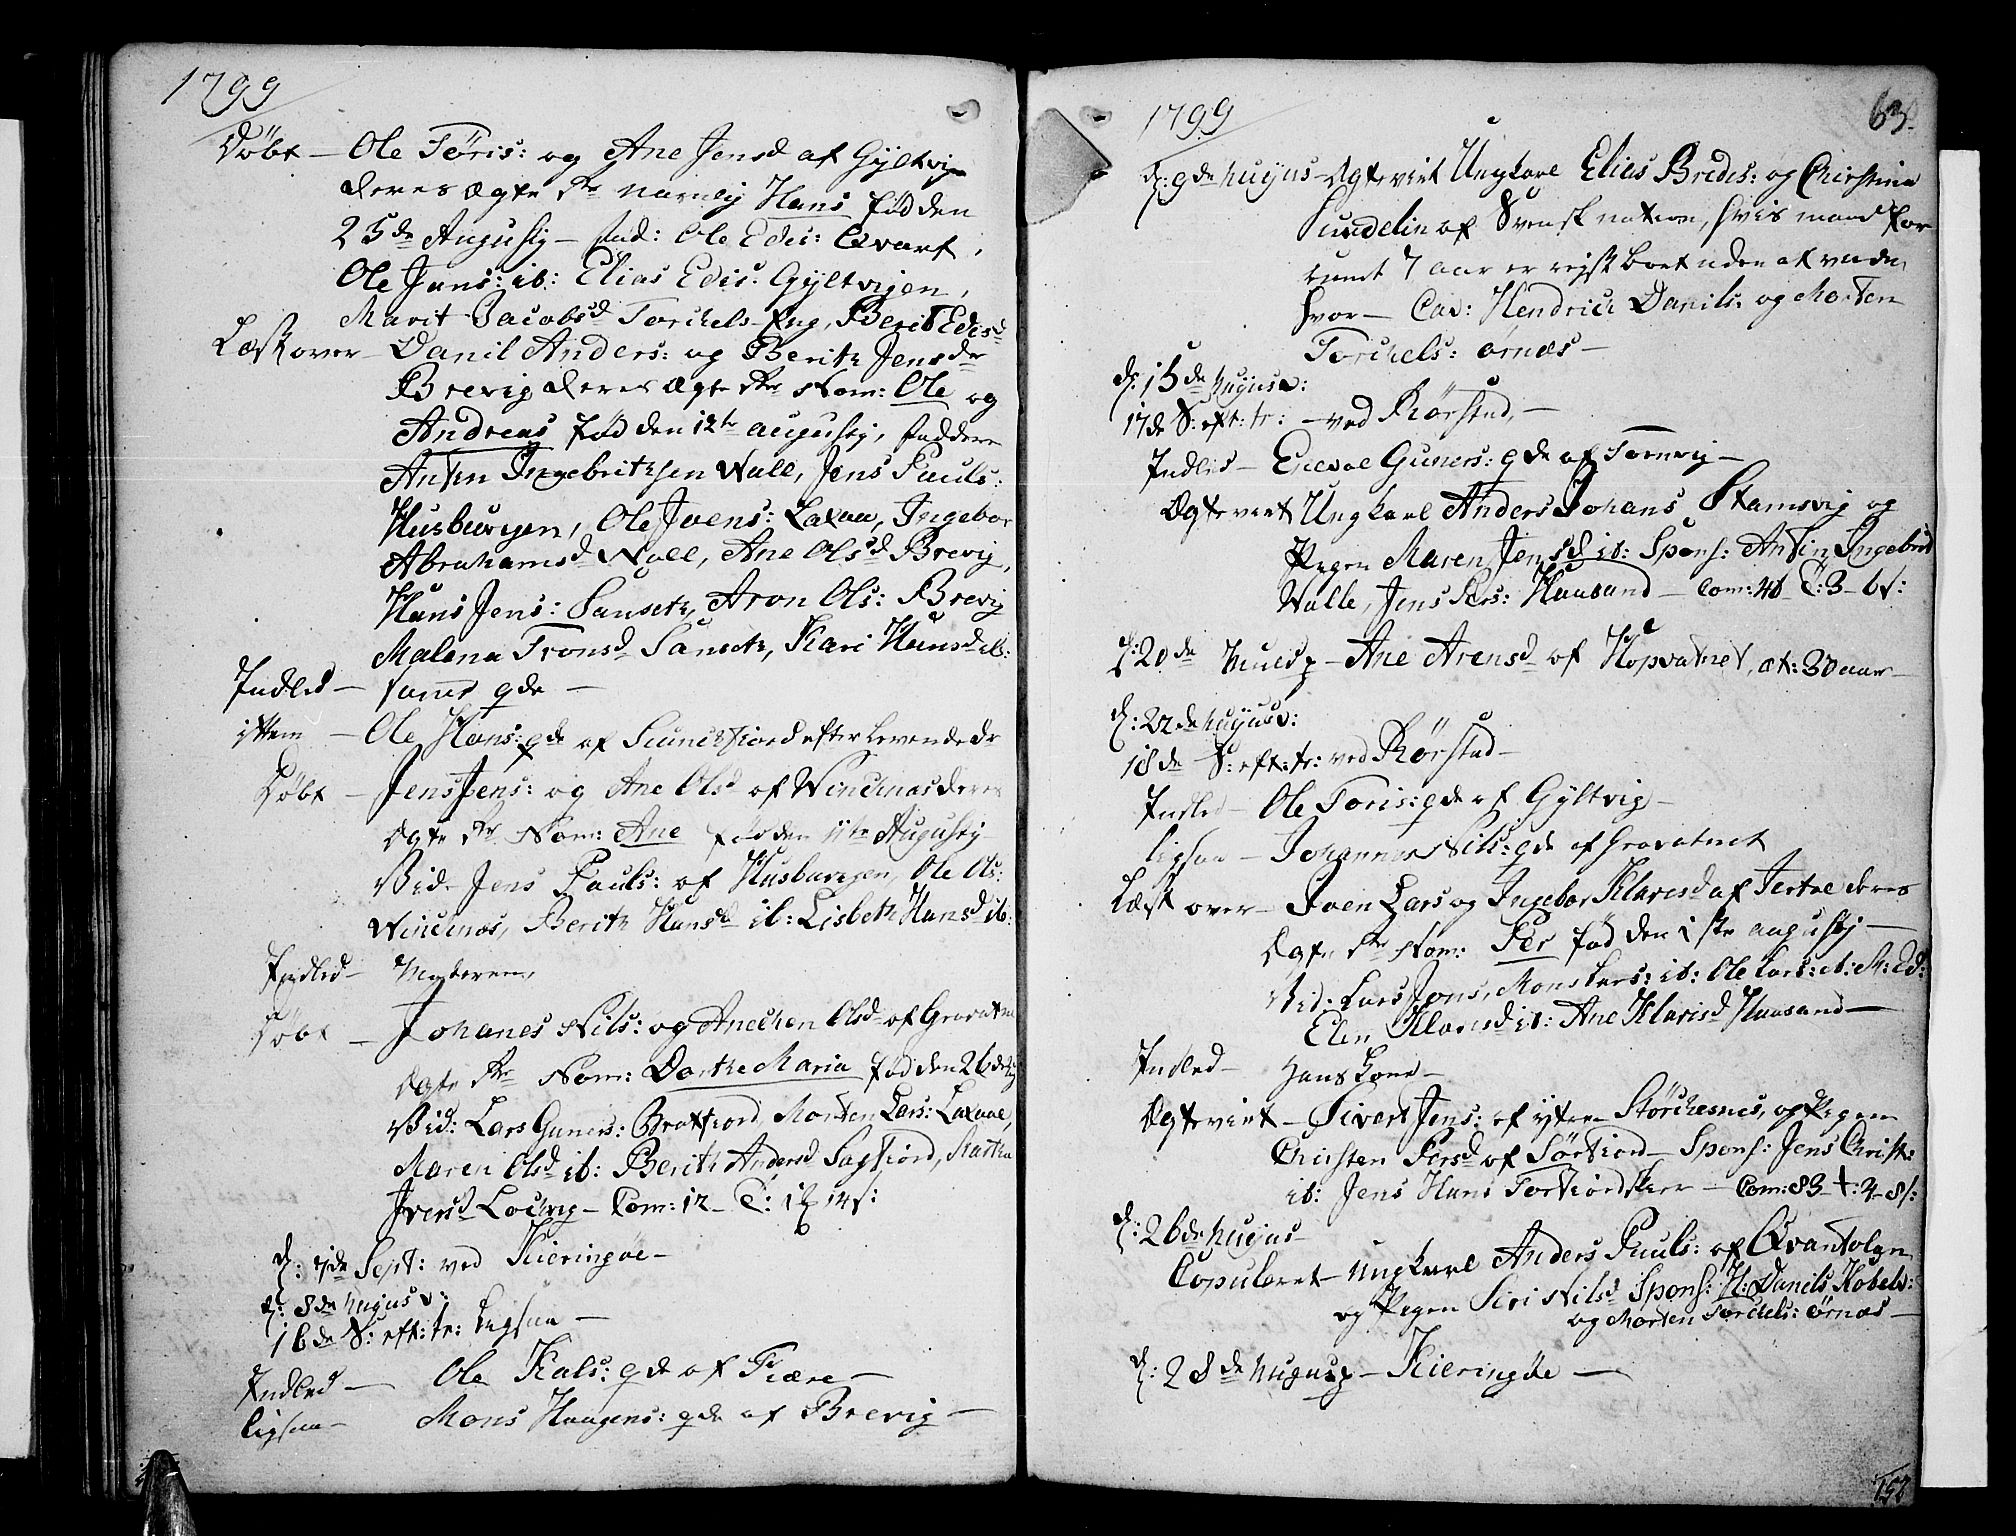 1799
Döbt — Ole Töris: og Ane Jensd af Gÿltvig
deres Ægte Br navnlig Hans fød den
25de Augusty — fad: Ole Edis: Qvarf,
Ole Jens: ib: Elias Edis: Gÿltvigen,
Marit Jacobsd Torchels-Eng, Berit Edisd
Læst over — Danil Anders: og Berith Jensdr
Brevig deres Ægte Nom: Ole og
Andreas fød den 12te augusty, faddere
Anten Ingebrithsen Valle, Jens Pauls:
Husbuvigen, Ole Joens: Laxaa, Ingebor
Abrahamsd Valle, Ane Olsd Brevig,
Hans Jens: Sanseth, Aron Ols: Brevig
Malena Tronsd Sanseth, Kari Hansd ib:
Indled — samme qde —
ittem — Ole Hans: qde af fiord efter Levende
Döbt — Jens Jens: og Ane Olsd af Windnæs deres
Ægte Nom: Ane fød den 11te Augusty
Vid: Jens Pauls: af Husbuvigen, Ole Ols:
Windnæs, Berith Hansd ib: Lisbeth Hansd ib:
Indled — Moderen,
Döbt — Johanes Nils: og Anechen Olsd af Gravatne
Ægte Nom: Dorthe Maria fød den 26de
Vid: Lars Guners: Brattfiord, Morten Lars: Laxaae,
Maren Olsd ib: Berith Andersd Sagfiord, Martha
Iversd Lochvig — Com: 12 — T: 1 14s:
d: 7de Sept: ved Kieringöe —
d: 8de hujus v:
16de S: eft: tr: ligsaa —
Indled — Ole Kals: qde af Fiære —
ligsaa — Mons Haagens: qde af Brevig —
1799
63.
d: 9de hujus — Ægteviet Ungkarl Elias Bredes: og Christina
Sundelin af Svensk nation, hvis mand for
rumt 7 aar er rejst bort uden at vide
hvor — Cav: Hendrich Danils: og Morten
Torchels: örnæs —
d: 15de hujus v:
17de S: eft: tr: — ved Rörstad, —
Indled — Enevol Guners: qde af Tornvig —
Ægteviet Ungkarl Anders Johans Stamsvig og
Pigen Maren Jensd ib: Spons: Antin Ingebrit
Valle, Jens Pers: Haasand — Com: 46 T: 3 — 6s:
d: 20de — Ane Arensd af Hopvatnet, æt: 30 aar —
d: 22de hujus v:
18de S: eft: tr: ved Rörstad —
Indled — Ole Toris: qde af Gÿltvig —
ligsaa — Johannes Nils: qde af Gravatnet
Læst over — Joen Lars og Ingebor Klarisd af Jertøe deres
Ægte Nom: Per fød den 1ste augusty —
Vid: Lars Jons, Mons Lars: ib: Ole Lars: ib:
Elen Klarisd ib: Ane Klarisd Haasand —
Indled — Hans Kone —
Ægteviet — Sivert Jens: af ytre Störchesnes, og Pigen
Christen Persd af Sörfiord — Spons: Jens Christ:
ib: Jens Hans Torfiordskier — Com: 83 — t: 4 — 8s:
d: 26de hujus —
Copuleret — Ungkarl Anders Pauls: af Qvantolen
og Pigen Siri Nilsd Spons: H: Danils Kobelv:
og Morten Torchels: örnæs —
d: 28de hujus — Kieringöe —